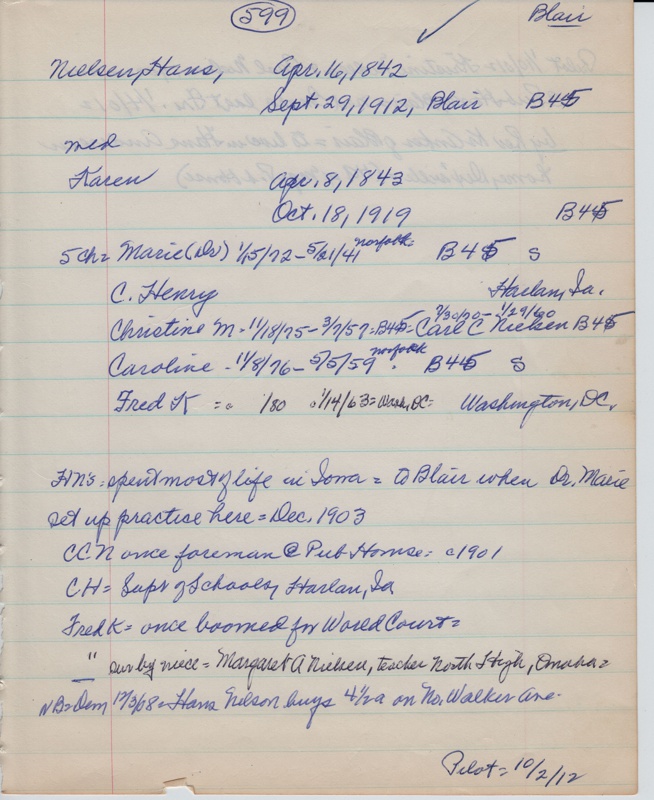 599
Blair
Nielsen, Hans, Apr. 16, 1842
Sept. 29, 1912, Blair B45
med
Karen Apr. 8, 1843
Oct. 18, 1919 B45
5 ch = Marie (Dr) 1/15/72 - 5/21/41 norfolk = B45 S
C. Henry Harlan, Ia.
Christine M - 11/18/75 - 3/7/57 = B45 = Carl C Nielsen 7/30/70 - 1/29/60 B45
Caroline - 11/8/76 - 5/5/59 norfolk . B45 S
Fred K = /80 1/14/63 = Wash, DC = Washington, DC.
HN's = spent most of life in Iowa = to Blair when Dr. Marie
set up practice here = Dec. 1903
CCN once foreman @ Pub House = c1901
CH = Supt of Schools, Harlan, Ia
Fred K = once boomed for World Court =
" sur by niece = Margaret A Nielsen, teacher North High, Omaha =
NB = Dem 12/3/08 = Hans Nelson buys 4 1/2 a on No. Walker Ave.
Pilot = 10/2/12